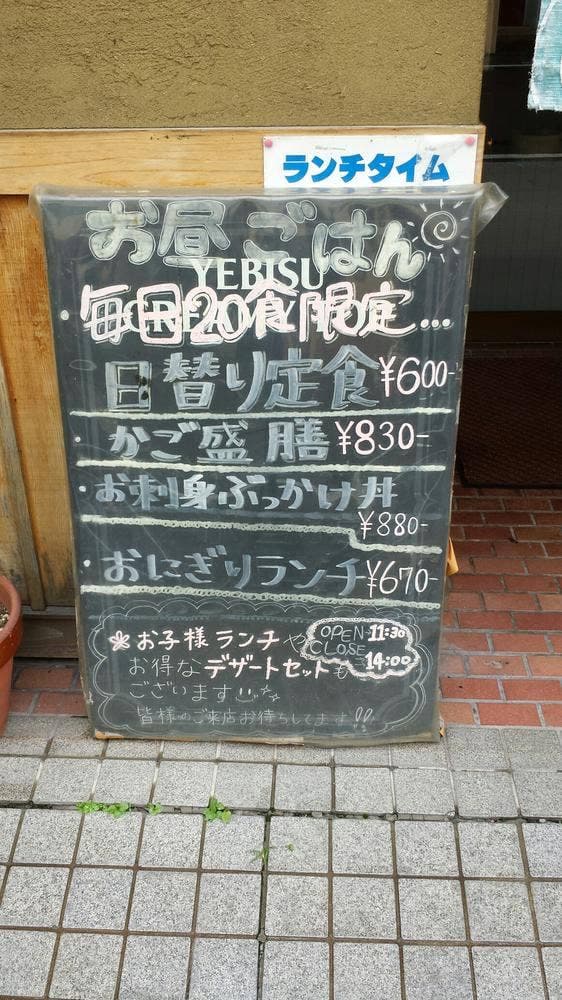 ランチタイム
お昼ごはん
YEBISU
毎日20食限定...
日替り定食 ¥600-
・かご盛膳 ¥830-
・お刺身ぶっかけ丼
¥880-
・おにぎりランチ ¥670-
お子様ランチや
お得なデザートセットも
ございます
OPEN 11:30
CLOSE 14:00
皆様のご来店お待ちしてます!!